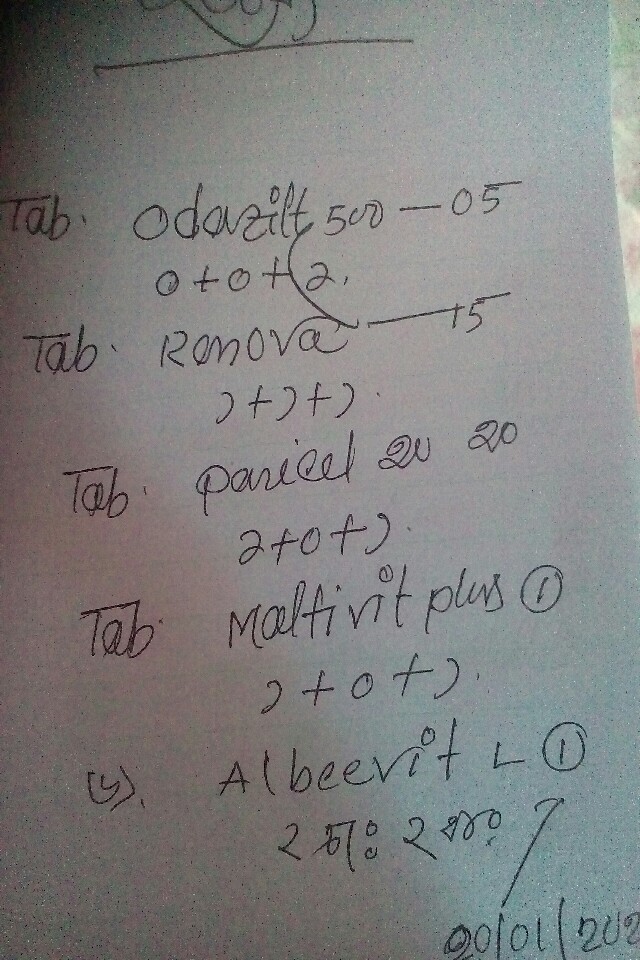 Tab. Odazith 500 — 05
0+0+১.
Tab. Renova — 15
১+১+১.
Tab. Paricel 20 20
১+0+১.
Tab. Maltivit plus ①
১+0+১.
Albeevit L ①
২ চাঃ ২
20/01/202